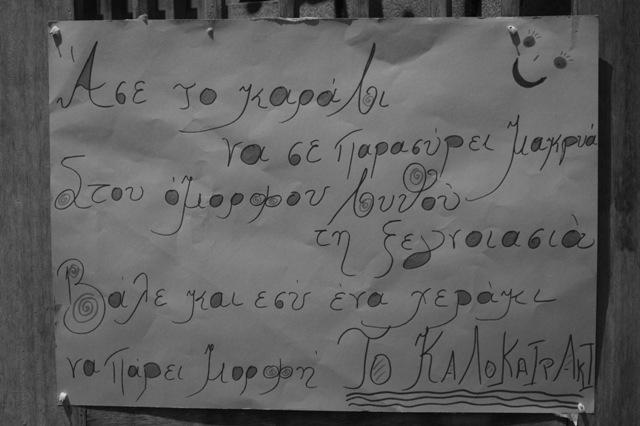 "Άσε το καράβι
να σε παρασύρει μακρυά
Στου όμορφου βυθού
τη ξεγνοιασιά
Βάλε και εσύ ένα χεράκι
να πάρει μορφή ΤΟ ΚΑΛΟΚΑΙΡΑΚΙ